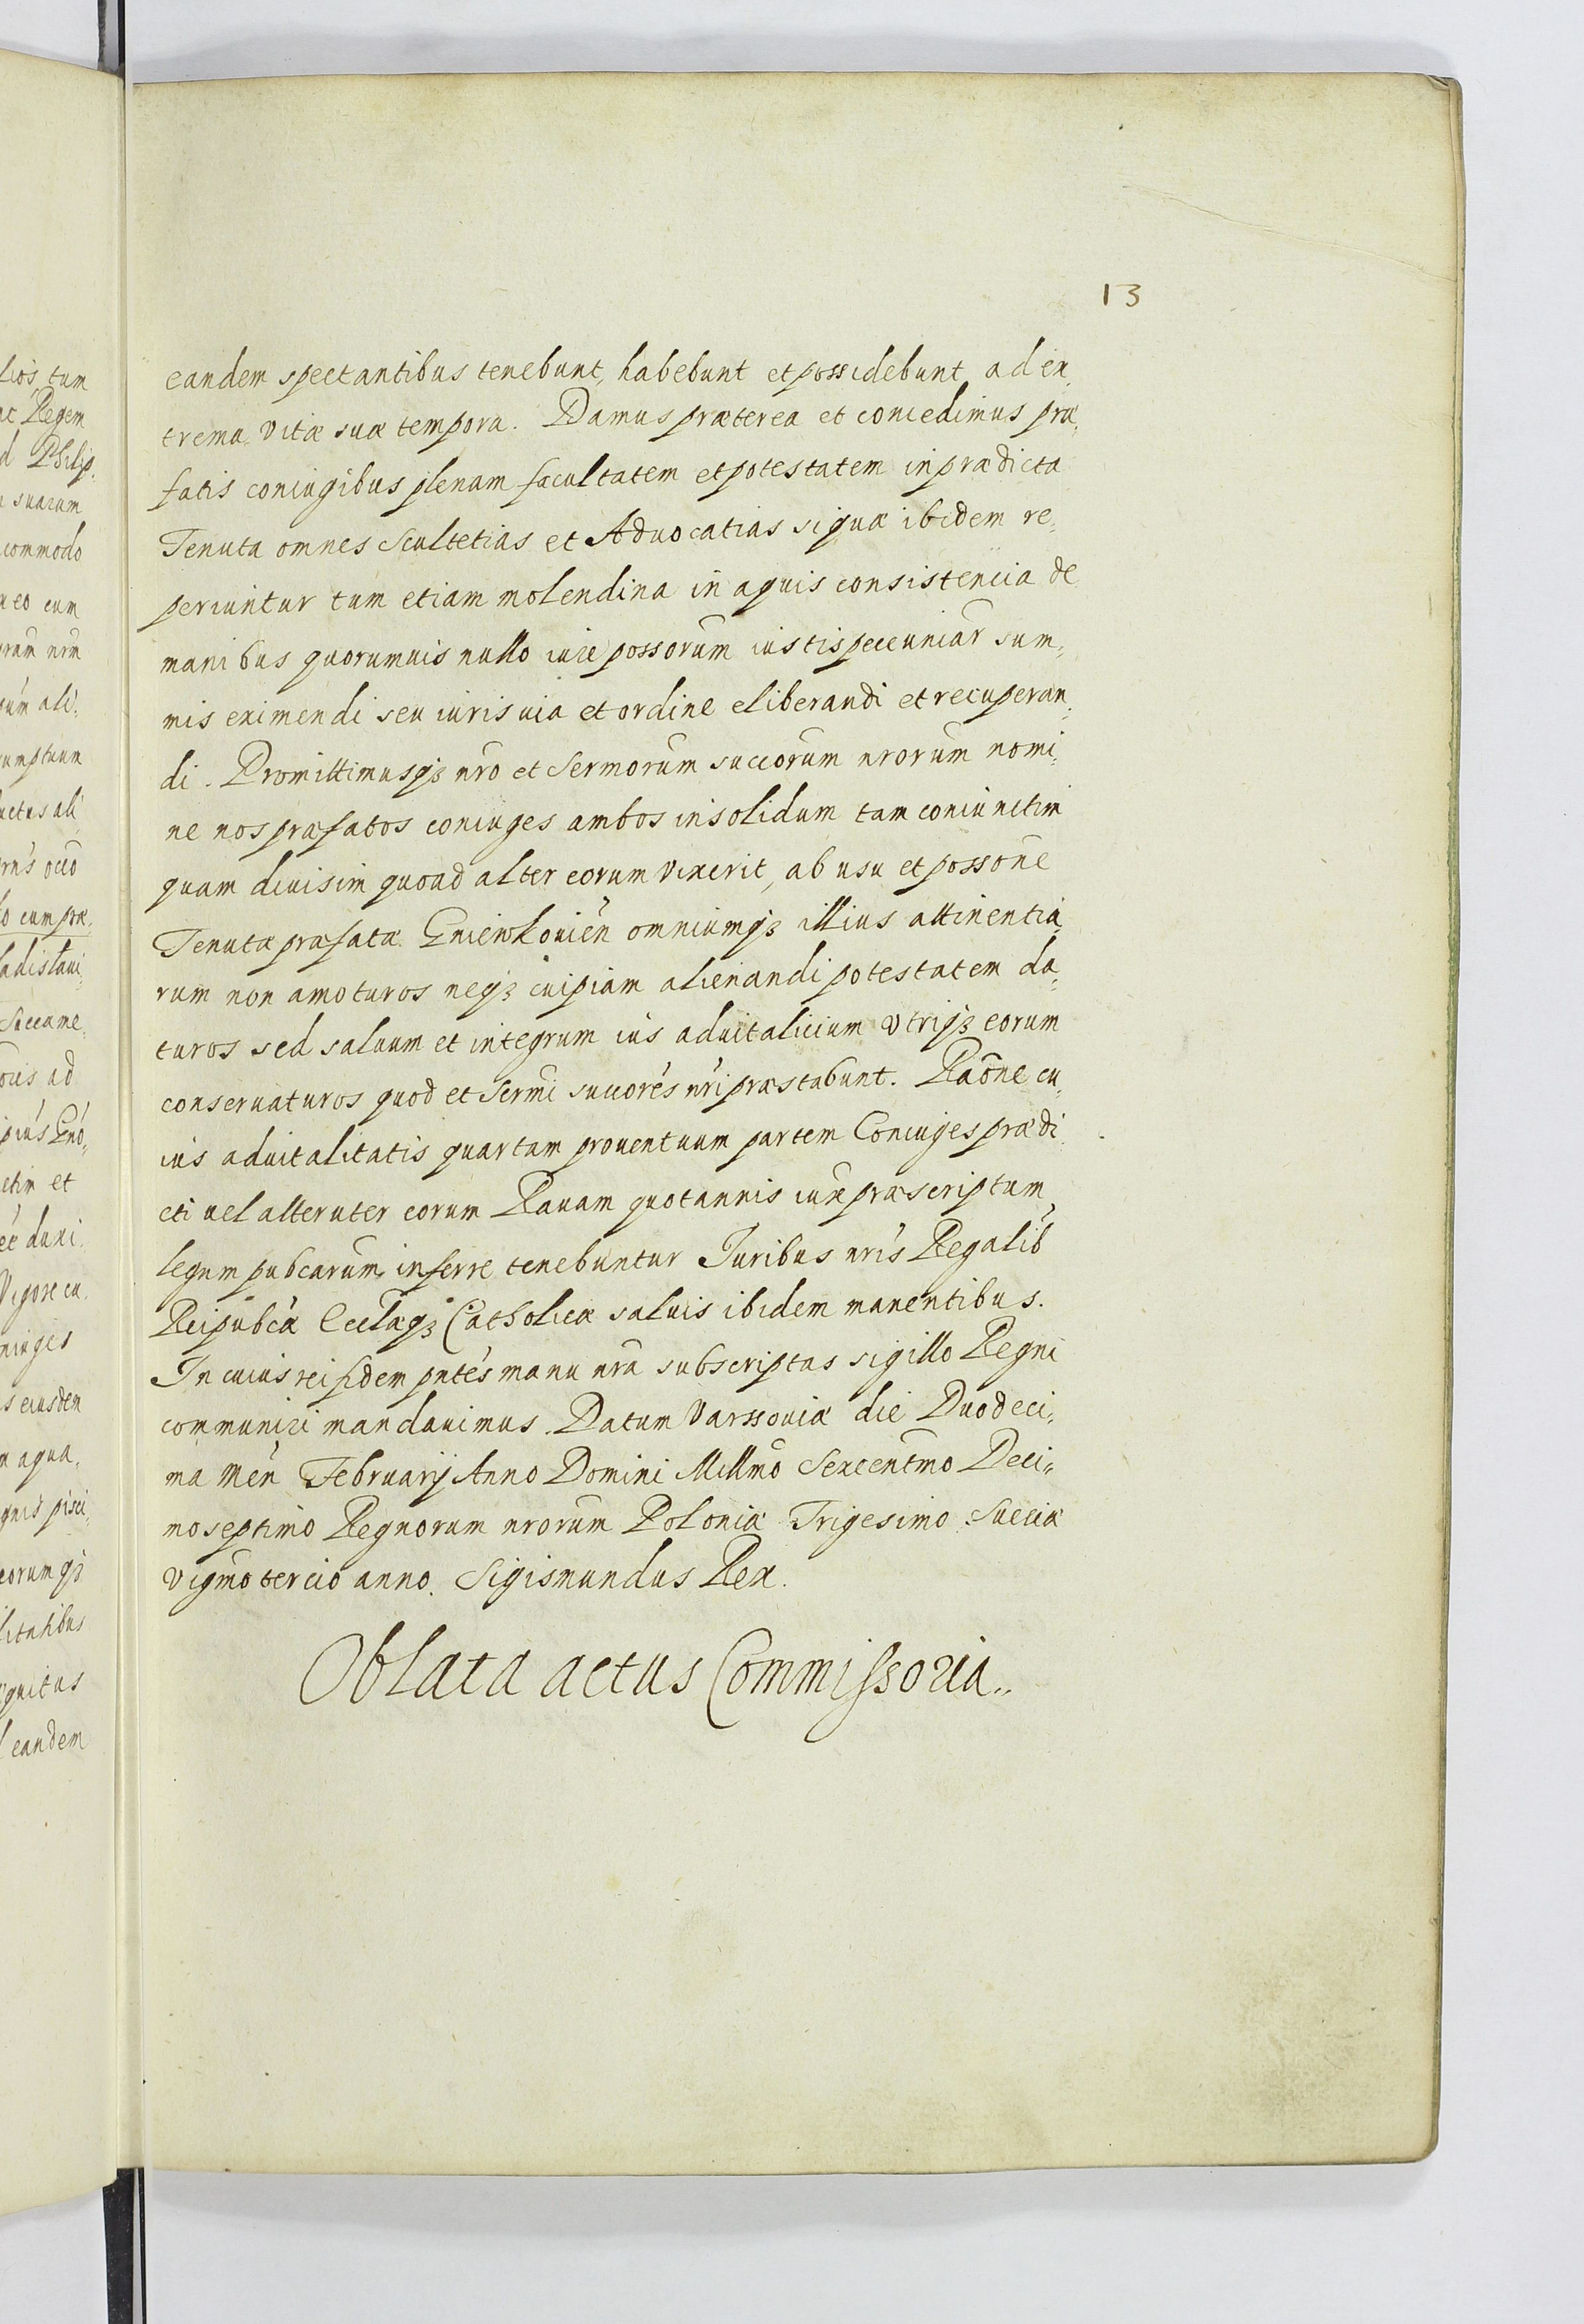 13
eandem spectantibus tenebunt, habebunt et possidebunt ad ex,
trema vitæ suæ tempora. Damus præterea et concedimus præ,
fatis coniugibus plenam facultatem et potestatem in prædicta
Tenuta omnes Scultetias et Aduocatias si quæ ibidem re,
periuntur tum etiam molendina in aquis consistencia de
manibus quorumuis nullo iure possorum̃ iustis pecuniar̃ sum,
mis eximendi seu iuris uia et ordine eliberandi et recuperan,
di. Promittimusqꝫ nr̃o et Sermorum̃ succorum̃ nrorum̃ nomi,
ne nos præfatos coniuges ambos insolidum tam coniunctim
quam diuisim quoad alter eorum vixerit, ab usu et possone̅
Tenutæ præfatæ Gniewkouień omniumqꝫ illius attinentia,
rum non amoturos neqꝫ cuipiam alienandi potestatem da,
turos sed saluum et integrum ius aduitalicium vtriqꝫ eorum
conseruaturos quod et Sermi̅ succorés nr̃i præstabunt. Raõne cu,
ius aduitalitatis quartam prouentuum partem Coniuges prædi,
cti uel alteruter eorum Rauam quotannis iuxe præscriptum
legum pubcarum̃ inferre tenebuntur Iuribus nrı́s Regalib́
Reipubcæ̀ Ecclæqꝫ Catholicæ saluis ibidem manentibus.
In cuius rei fidem pntés manu nr̃a subscriptas sigillo Regni
communiri mandauimus. Datum Varssouiæ die Duodeci,
ma Meń Februarij Anno Domini Millmo̅ Sexcentmo̅ Deci,
moseptimo Regnorum nrorum̃ Poloniæ Trigesimo Sueciæ
vigmo̅ tercio anno. Sigismundus Rex.
Oblata actus Commissoria..